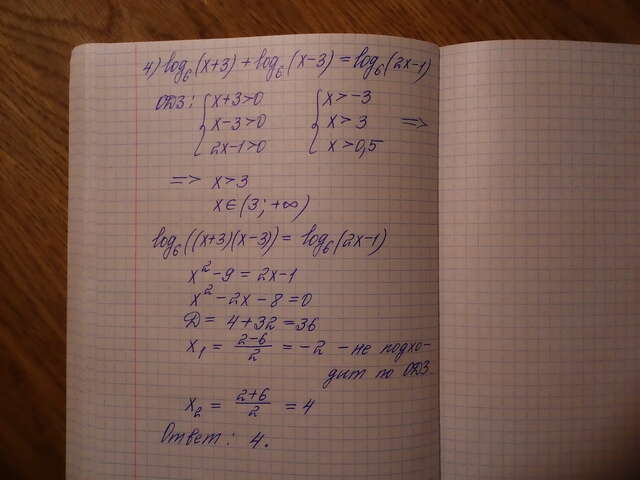 4) log₆(x+3) + log₆(x-3) = log₆(2x-1)
ОДЗ: { x+3>0 { x>-3
x-3>0 x>3 =>
2x-1>0 x>0,5
=> x>3
x∈(3; +∞)
log₆((x+3)(x-3)) = log₆(2x-1)
x²-9 = 2x-1
x²-2x-8=0
Д= 4+32=36
x₁ = (2-6)/2 = -2 - не подхо-
дит по ОДЗ.
x₂ = (2+6)/2 = 4
Ответ: 4.